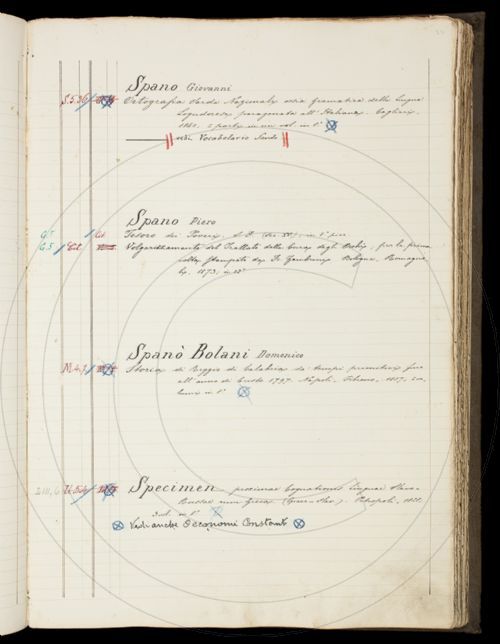 Spano Giovanni
S.5.26 Ortografia Sarda Nazionale ossia gramatica della lingua
logudorese paragonata all'Italiana. Cagliari,
1840. 2 parti in un vol. in 8°
vedi Vocabolario Sardo
Spano Piero
Tesoro de' Poveri. S. D. in 8° picc.
Volgarizzamento del Trattato della cura degli occhi, per la prima
volta stampato da F. Zambrini. Bologna, Romagnoli
1873; in 12°
Spanò Bolani Domenico
Storia di Reggio di Calabria da' tempi primitivi fino
all'anno di Cristo 1797. Napoli, Fibreno, 1857,
lumi in 8°
Specimen proximae cognationis linguae Slavo-
Russae cum Graeca (Graec-Slav.). Petropoli, 1828.
in 8°
Vedi anche Oeconomi Constant.